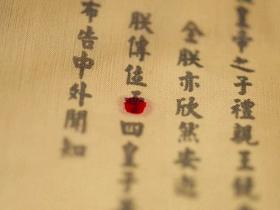 皇帝之子禮親王
全朕亦欣然安逝
朕傳位四皇子
布告中外聞知